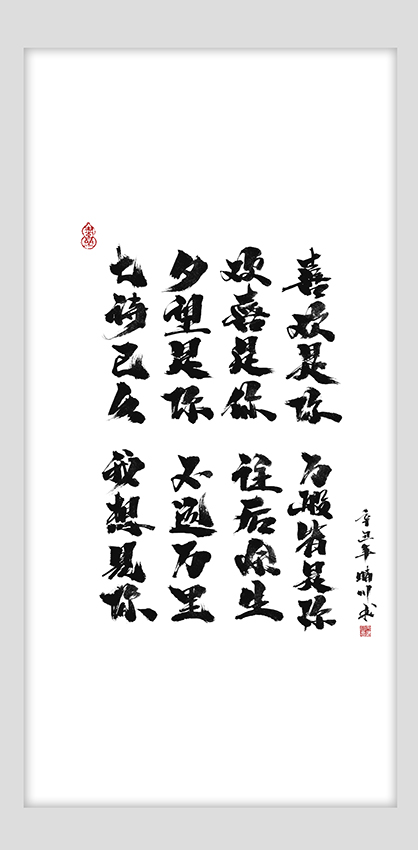 喜欢是你
万般皆是你
欢喜是你
往后余生
夕望是你
不远万里
已久
我想见你
辛丑年